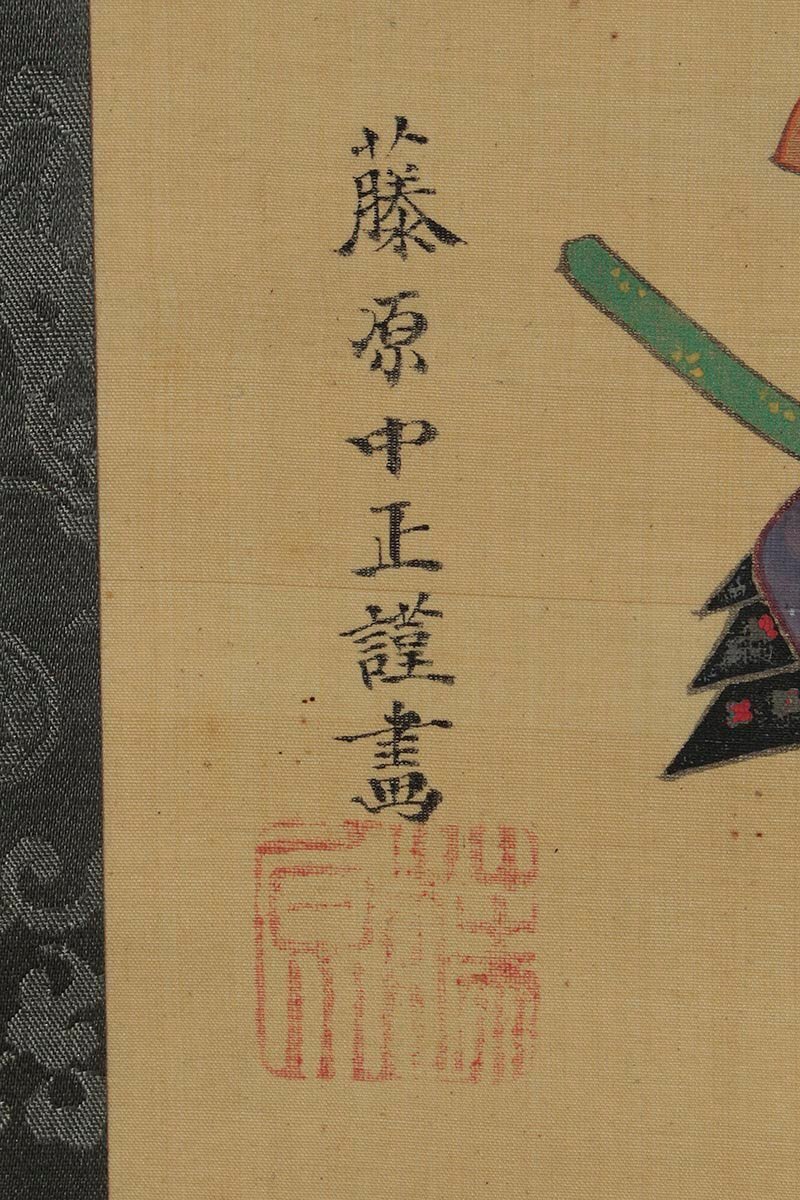 藤原中正謹畫